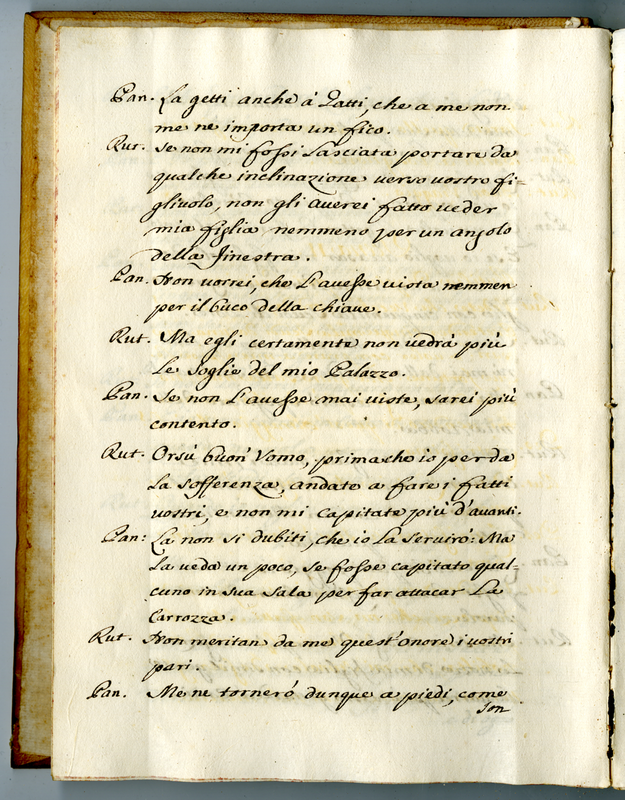 Pan. La getti anche à Gatti, che a me non
me ne importa un fico.
Rut. Se non mi fossi lasciata portare da
qualche inclinazione verso vostro fi=
gliuolo, non gli averei fatto veder
mia figlia nemmeno per un angolo
della finestra.
Pan. Non vorrei, che l'avesse vista nemmen
per il buco della chiave.
Rut. Ma egli certamente non vedrà più
le soglie del mio Palazzo.
Pan. Se non l'avesse mai viste, sarei più
contento.
Rut. Orsù buon' Vomo, prima che io perda
la sofferenza, andate a fare i fatti
vostri, e non mi capitate più d'avanti.
Pan: La non si dubiti, che io la servirò: Ma
la veda un poco, se fosse capitato qual=
cuno in sua sala per far attacar la
Carrozza.
Rut. Non meritan da me quest'onore i vostri
pari.
Pan. Me ne tornerò dunque a piedi, come
son